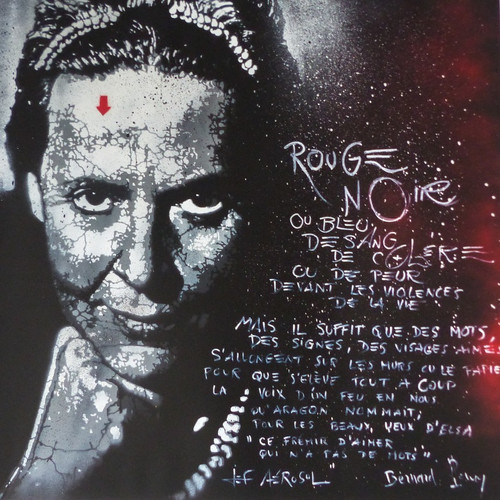 ROUGE
NOIRE
OU BLEU
DE SANG
DE COLÈRE
OU DE PEUR
DEVANT LES VIOLENCES
DE LA VIE
MAIS IL SUFFIT QUE DES MOTS,
DES SIGNES, DES VISAGES AIMÉS
S'ALLONGENT SUR LES MURS OU LE PAPIE
POUR QUE S'ELÈVE TOUT A COUP
LA VOIX D'UN FEU EN NOUS
QU'ARAGON NOMMAIT,
POUR LES BEAUX YEUX D'ELSA
"CE FRÉMIR D'AIMER
QUI N'A PAS DE MOTS"
JEF AÉROSOL Bernard